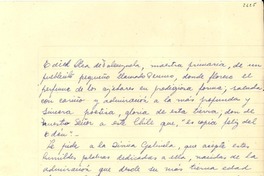 Edith Olea de Valenzuela, maestra primaria, de un
pueblecito pequeño llamado Pemuco, donde florece el
perfume de los azahares en prodigiosa forma, saluda,
con cariño y admiración a la más profunda y
sincera poetisa, gloria de esta tierra, don de
nuestro Señor a este Chile que, "Es copia feliz del
Edén".
Le pide a la Divina Gabriela, que acepte estas
humildes palabras dedicadas a ella, nacidas de la
admiración que desde su más tierna edad